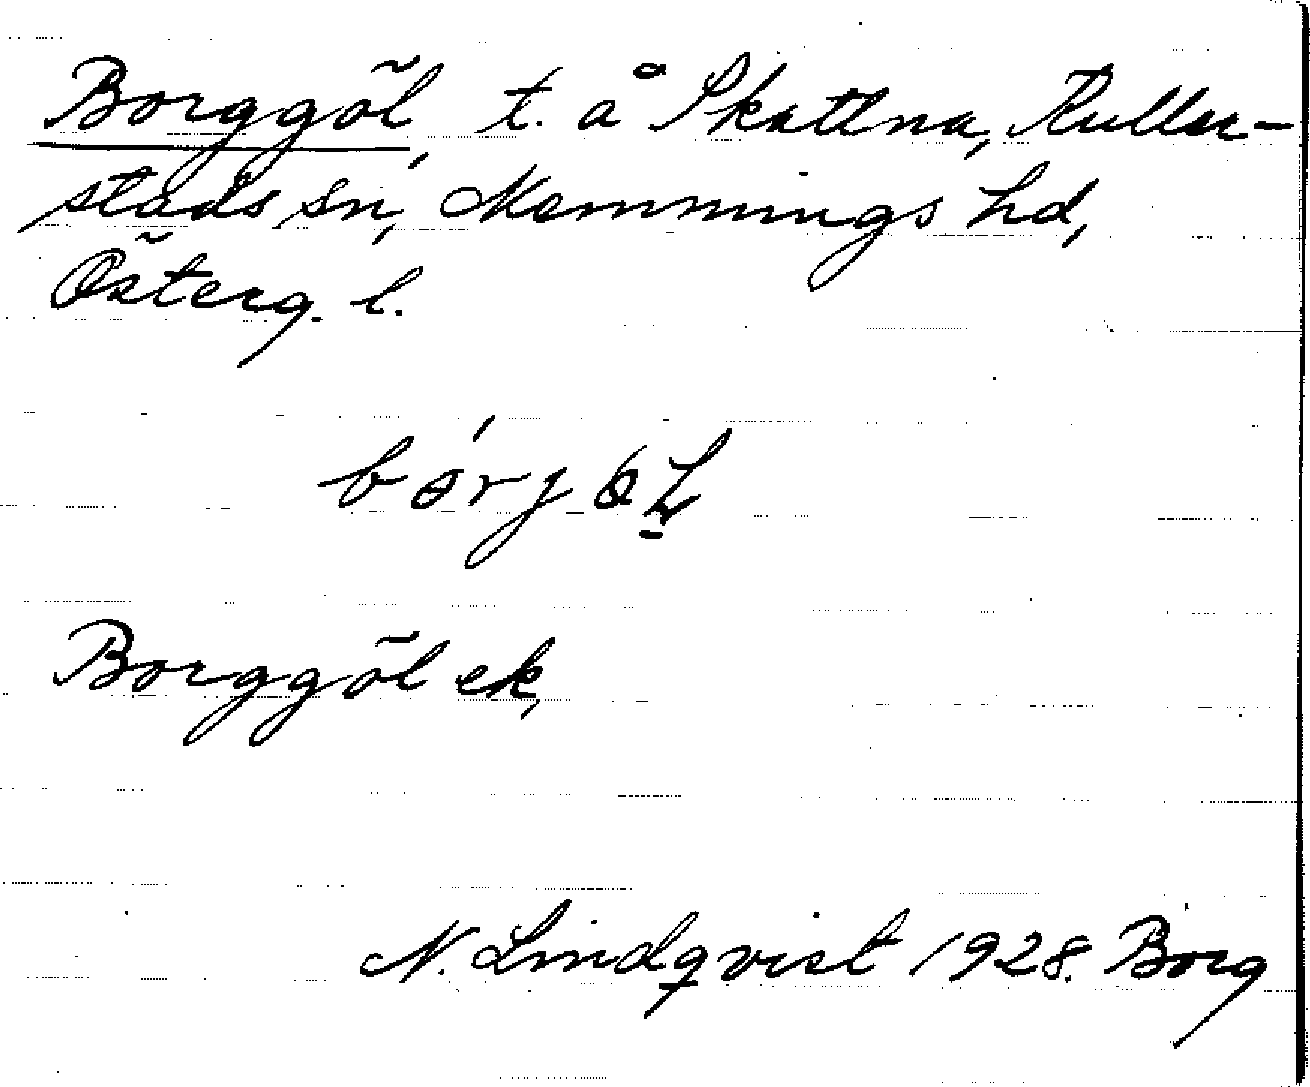 Borggöl, t. å Skattna, Kuller-
stads sn, Memmings hd,
Österg. l.
Borggöl ek,
N. Lindqvist 1928. Borg